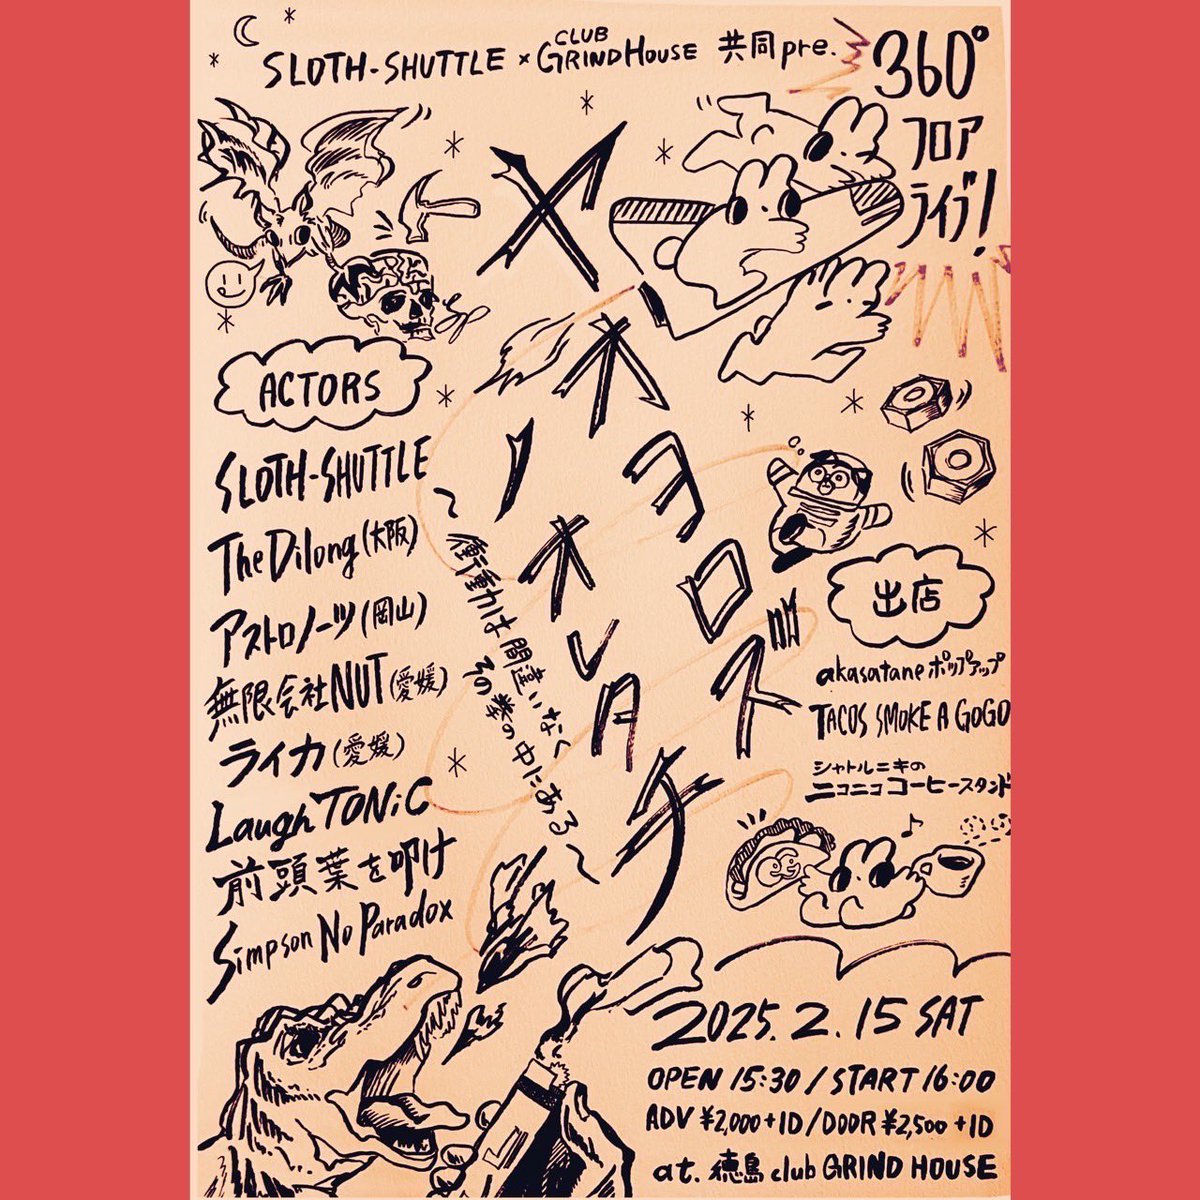 SLOTH-SHUTTLE × CLUB GRINDHOUSE 共同pre.
360°
フロア
ライブ!
ヤオヨロズ
ノオレタチ
〜衝動は間違いなく
その拳の中にある〜
ACTORS
SLOTH-SHUTTLE
The Dilong(大阪)
アストロノーツ(岡山)
無限会社NUT(愛媛)
ライカ(愛媛)
Laugh TONiC
前頭葉を叩け
Simpson No Paradox
出店
akasatane ポップアップ
TACOS SMOKE A GOGO
シャトルニキの
ニコニココーヒースタンド
2025.2.15 SAT
OPEN 15:30 / START 16:00
ADV ¥2,000+1D / DOOR ¥2,500+1D
at. 徳島 club GRIND HOUSE